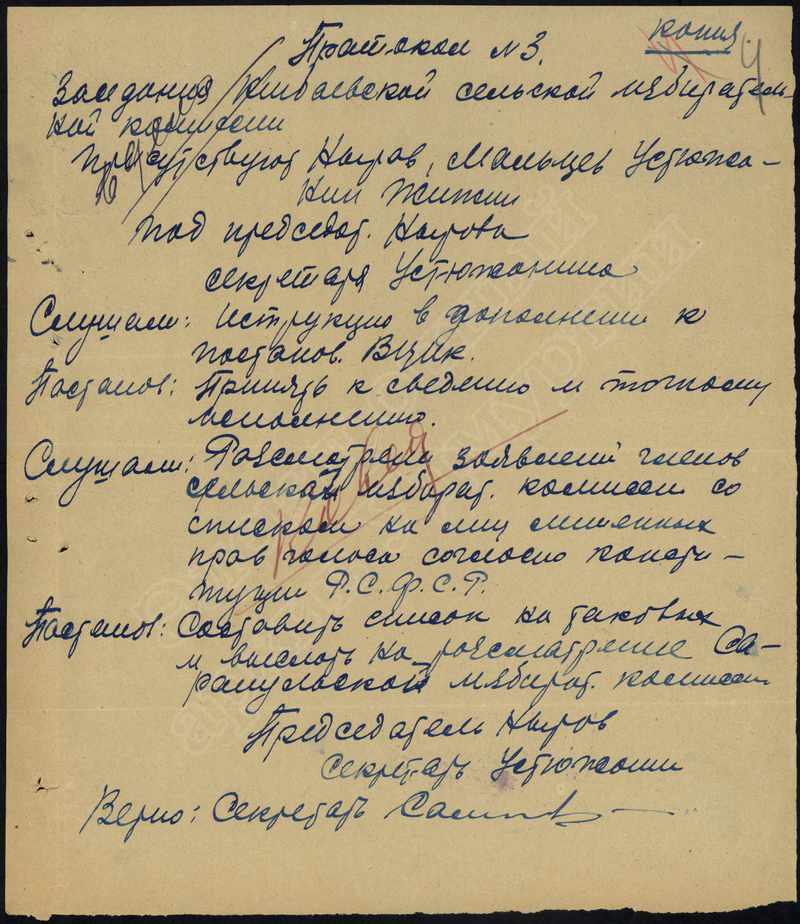 копия
4
Протокол №3.
Заседания Кигбаевской сельской избиратель-
ной комиссии
Присутствуют Кыров, Мальцев Устюжа-
нин Жижин
Под председат. Кырова
секретаря Устюжанина
Слушали: Иструкцию в дополнении к
постанов. ВЦИК.
Постанов: Принять к сведению и точному
исполнению.
Слушали: Розсмотрели заявлений членов
сельской избират. комиссии со
списком на лиц лишенных
прав голоса согласно консти-
туции Р.С.Ф.С.Р.
Постанов: Составить список на таковых
и выслать на розсмотрение Са-
рапульской избират. комиссии
Председатель Кыров
Секретарь Устюжанин
Верно: Секретарь